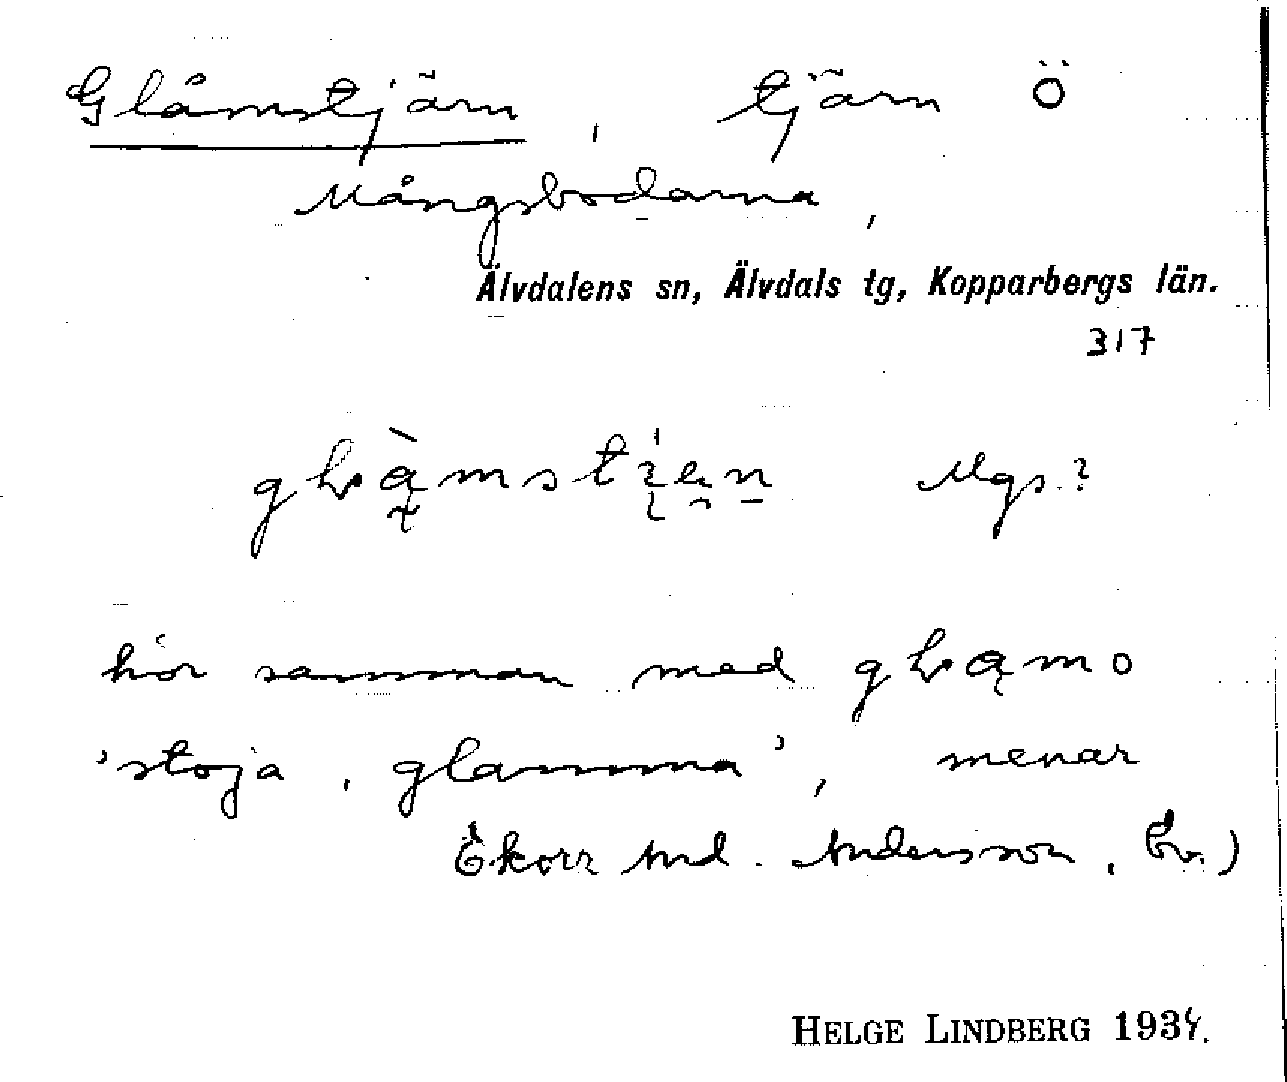 Glåmstjärn, tjärn Ö
Mångsbodarna,
Älvdalens sn, Älvdals tg, Kopparbergs län.
317
Mgs.?
hör samman med
'stoja, glamma', menar
And. Andersson,
HELGE LINDBERG 1934.